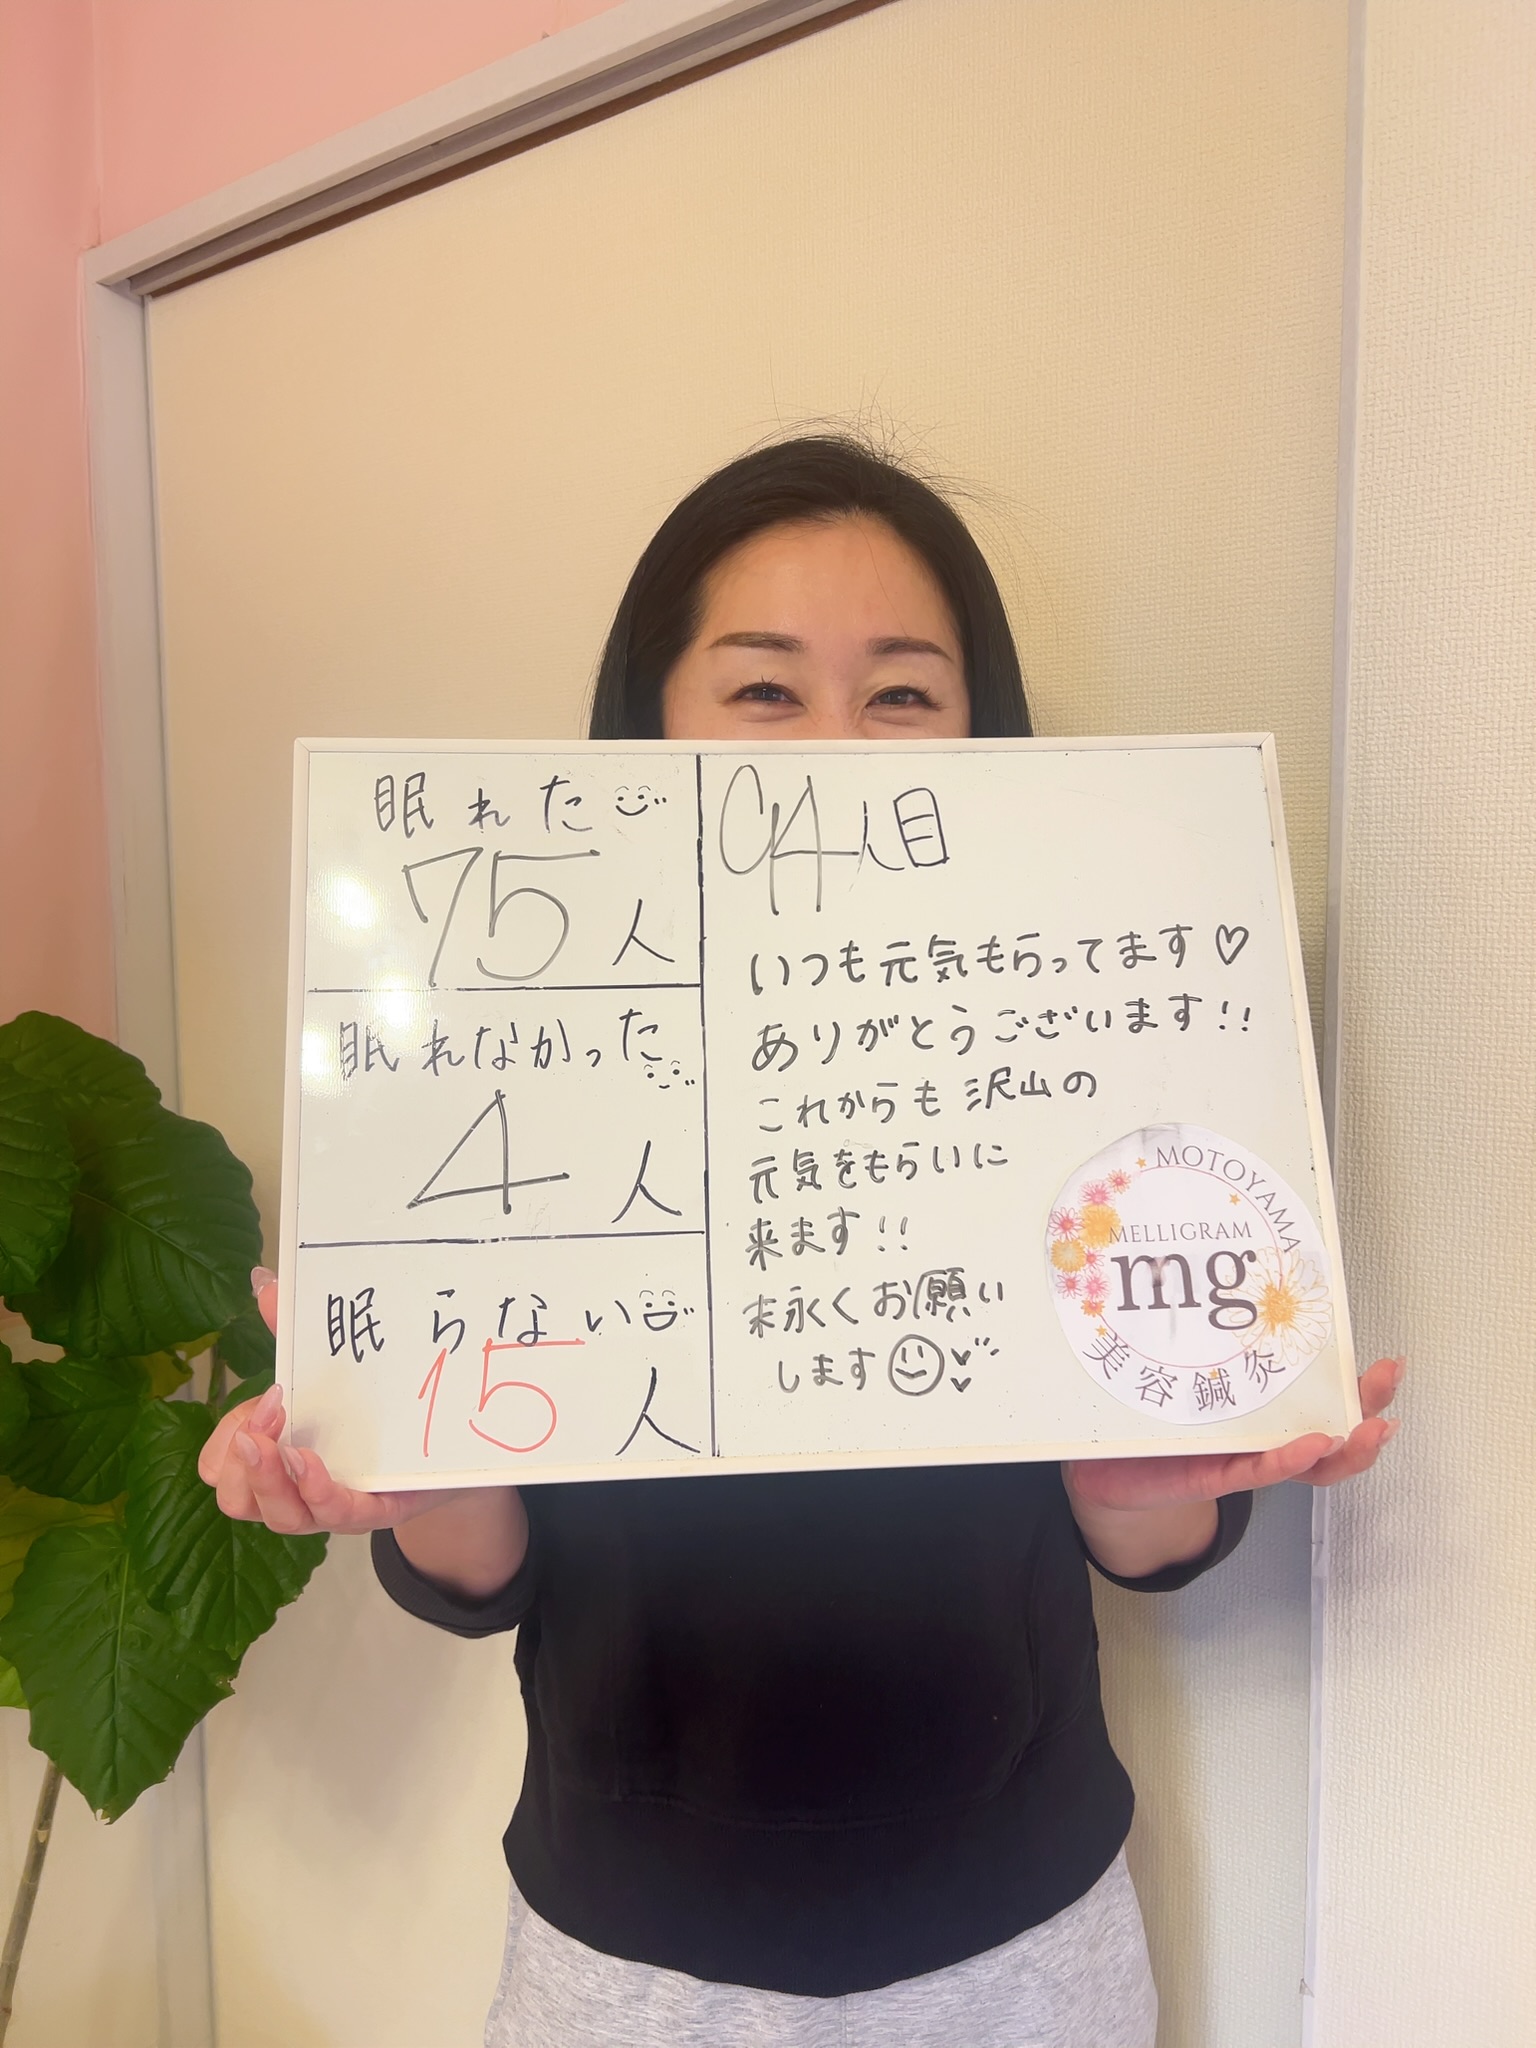 眠れた
75人
眠れなかった
4人
眠らない
15人
94人目
いつも元気もらってます♡
ありがとうございます!!
これからも沢山の
元気をもらいに
来ます!!
末永くお願い
します
MOTOYAMA
MELLIGRAM
mg
美容鍼灸